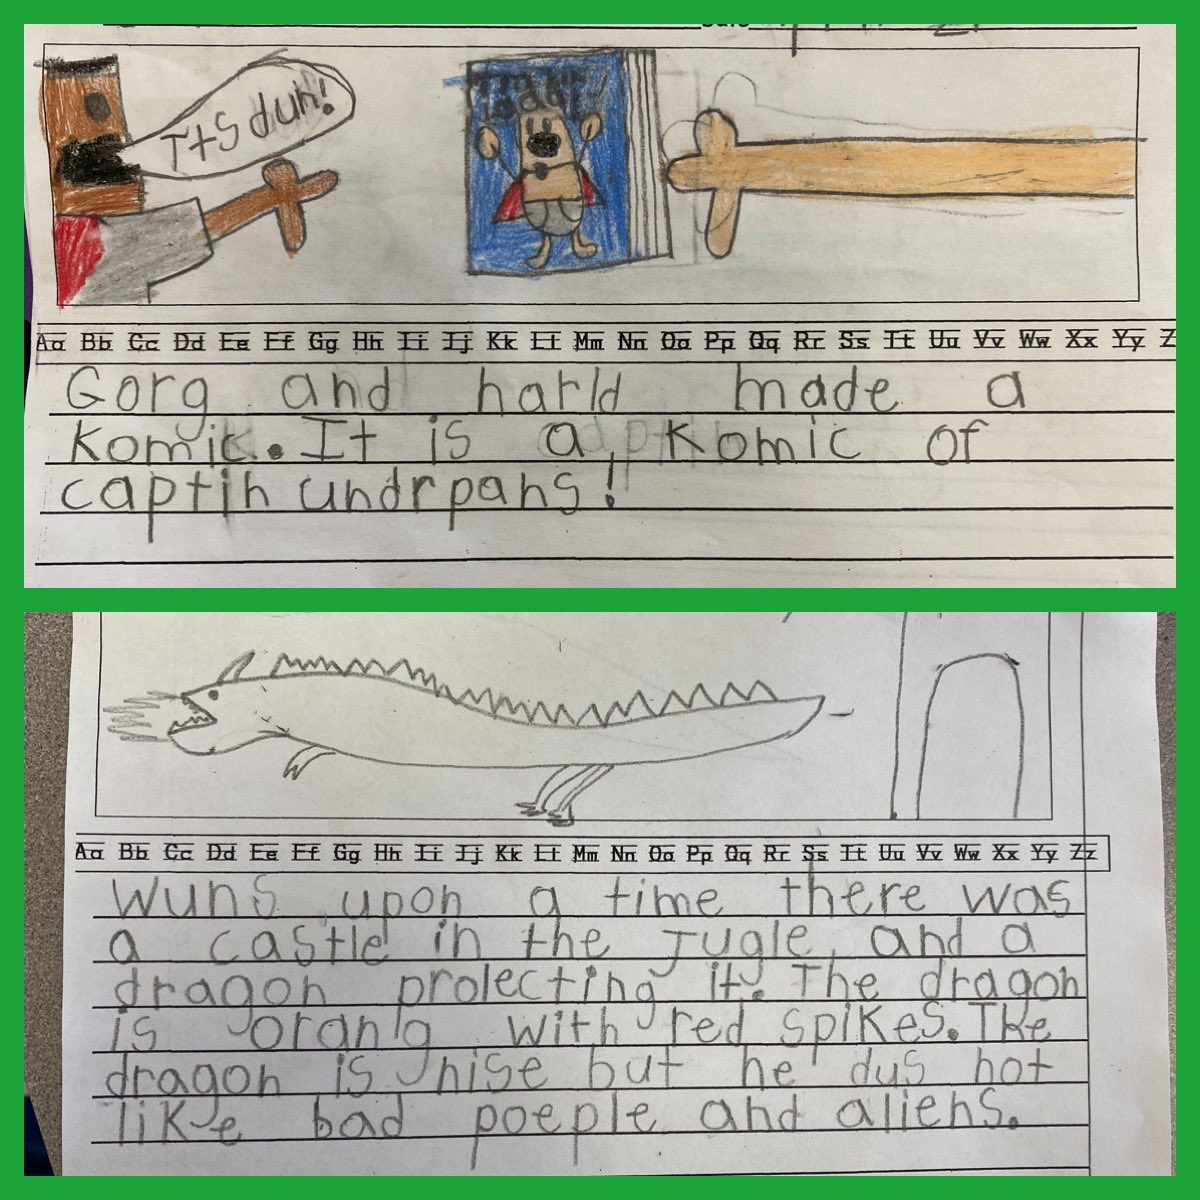 Its dun!
Aa Bb Cc Dd Ee Ff Gg Hh Ii Jj Kk Ll Mm Nn Oo Pp Qq Rr Ss Tt Uu Vv Ww Xx Yy Z
Gorg and harld made a
Komic. It is a Komic of
captin undrpans!
Aa Bb Cc Dd Ee Ff Gg Hh Ii Jj Kk Ll Mm Nn Oo Pp Qq Rr Ss Tt Uu Vv Ww Xx Yy Zz
Wuns upon a time there was
a castle in the Jugle, and a
dragon protecting it. The dragon
is orang with red spikes. The
dragon is nise but he dus not
like bad poeple and aliens.